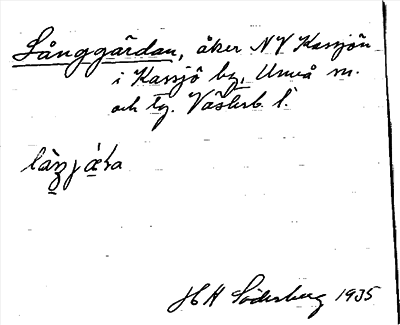 Långgärdan, åker NV Kassjön
i Kassjö by, Umeå sn.
och tg. Västerb. l.
H H Söderberg 1935